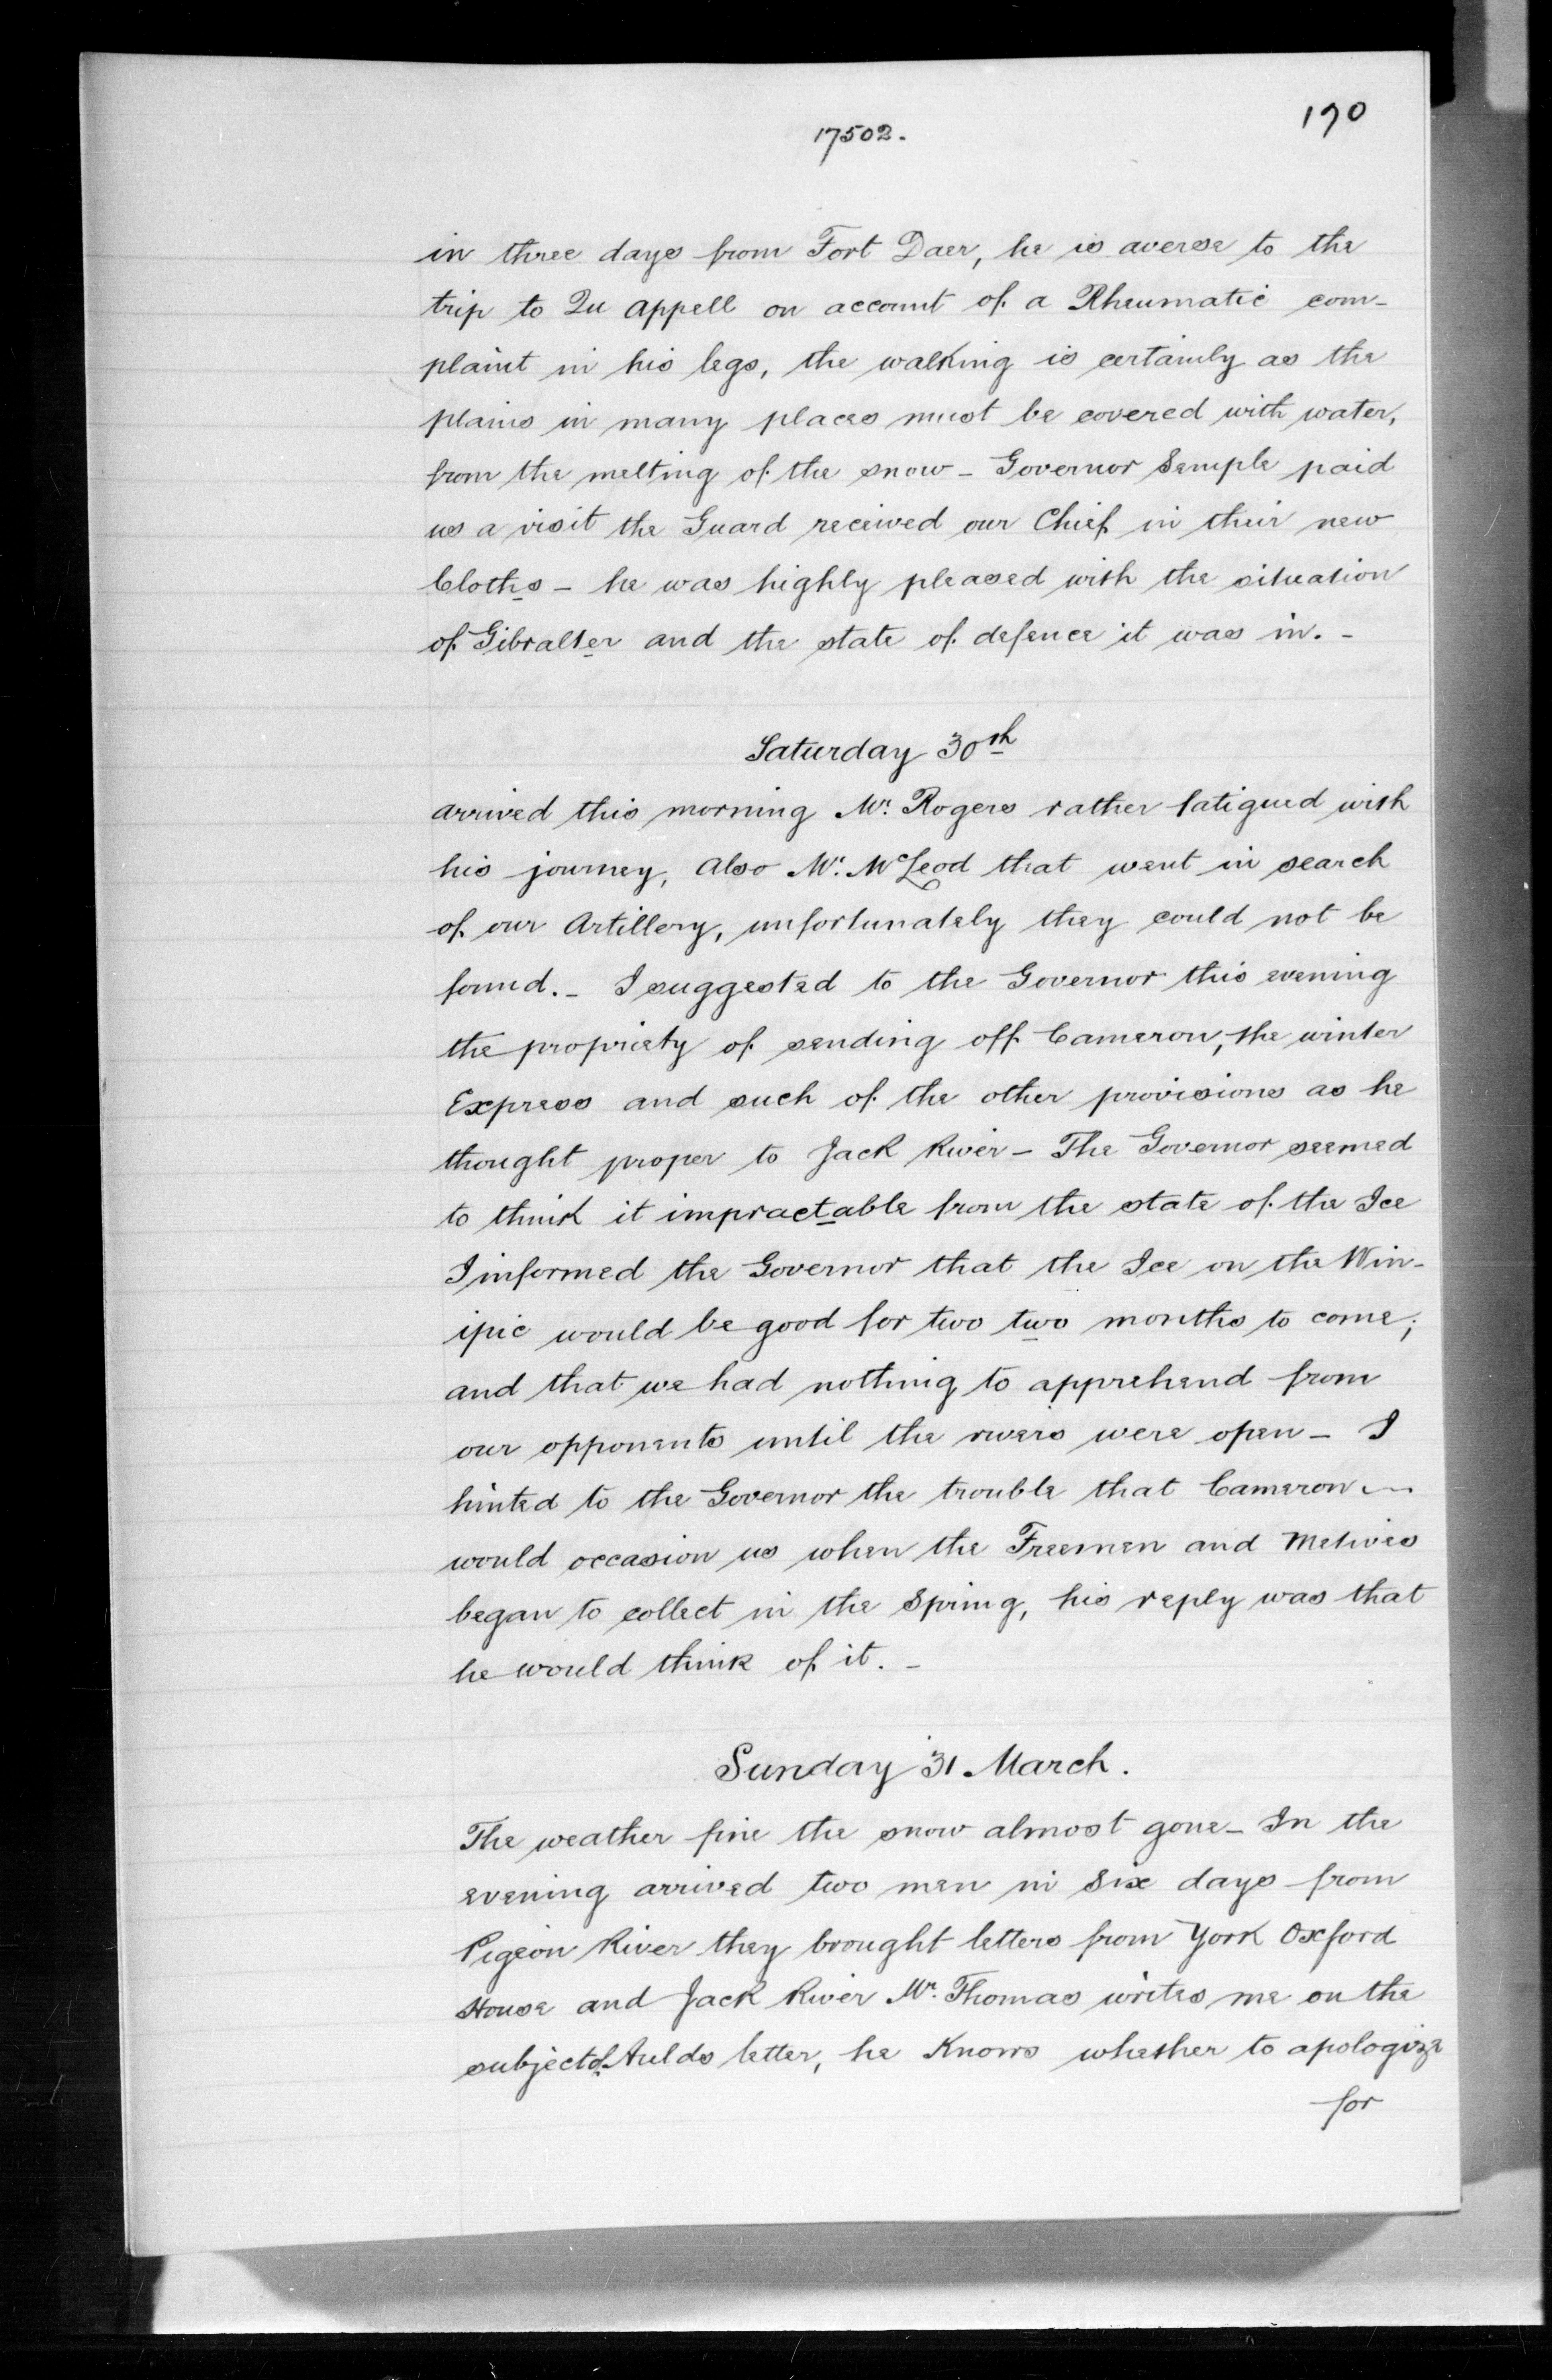 190
17502.
in three days from Fort Daer, he is averse to the
trip to Qu appell on account of a Rheumatic com-
plaint in his legs, the walking is certainly as the
plains in many places must be covered with water,
from the melting of the snow - Governor Semple paid
us a visit the Guard received our Chief in their new
Cloths - he was highly pleased with the situation
of Gibralter and the state of defence it was in. -
Saturday 30th
arrived this morning Mr. Rogers rather fatigued with
his journey, Also Mr. McLeod that went in search
of our Artillery, unfortunately they could not be
found. - I suggested to the Governor this evening
the propriety of sending off Cameron, the winter
Express and such of the other provisions as he
thought proper to Jack River - The Governor seemed
to think it impractable from the state of the Ice
I informed the Governor that the Ice on the Win-
ipic would be good for two two months to come;
and that we had nothing to apprehend from
our opponents until the rivers were open - I
hinted to the Governor the trouble that Cameron
would occasion us when the Freemen and Metives
began to collect in the Spring, his reply was that
he would think of it. -
Sunday 31 March.
The weather fine the snow almost gone - In the
evening arrived two men in Six days from
Pigeon River they brought letters from York Oxford
House and Jack River Mr. Thomas writes me on the
subject of Aulds letter, he Knows whether to apologize
for